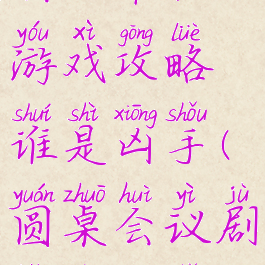 yóu xì gōng lüè
游戏攻略
shuí shì xiōng shǒu
谁是凶手(
yuán zhuō huì yì jù
圆桌会议剧